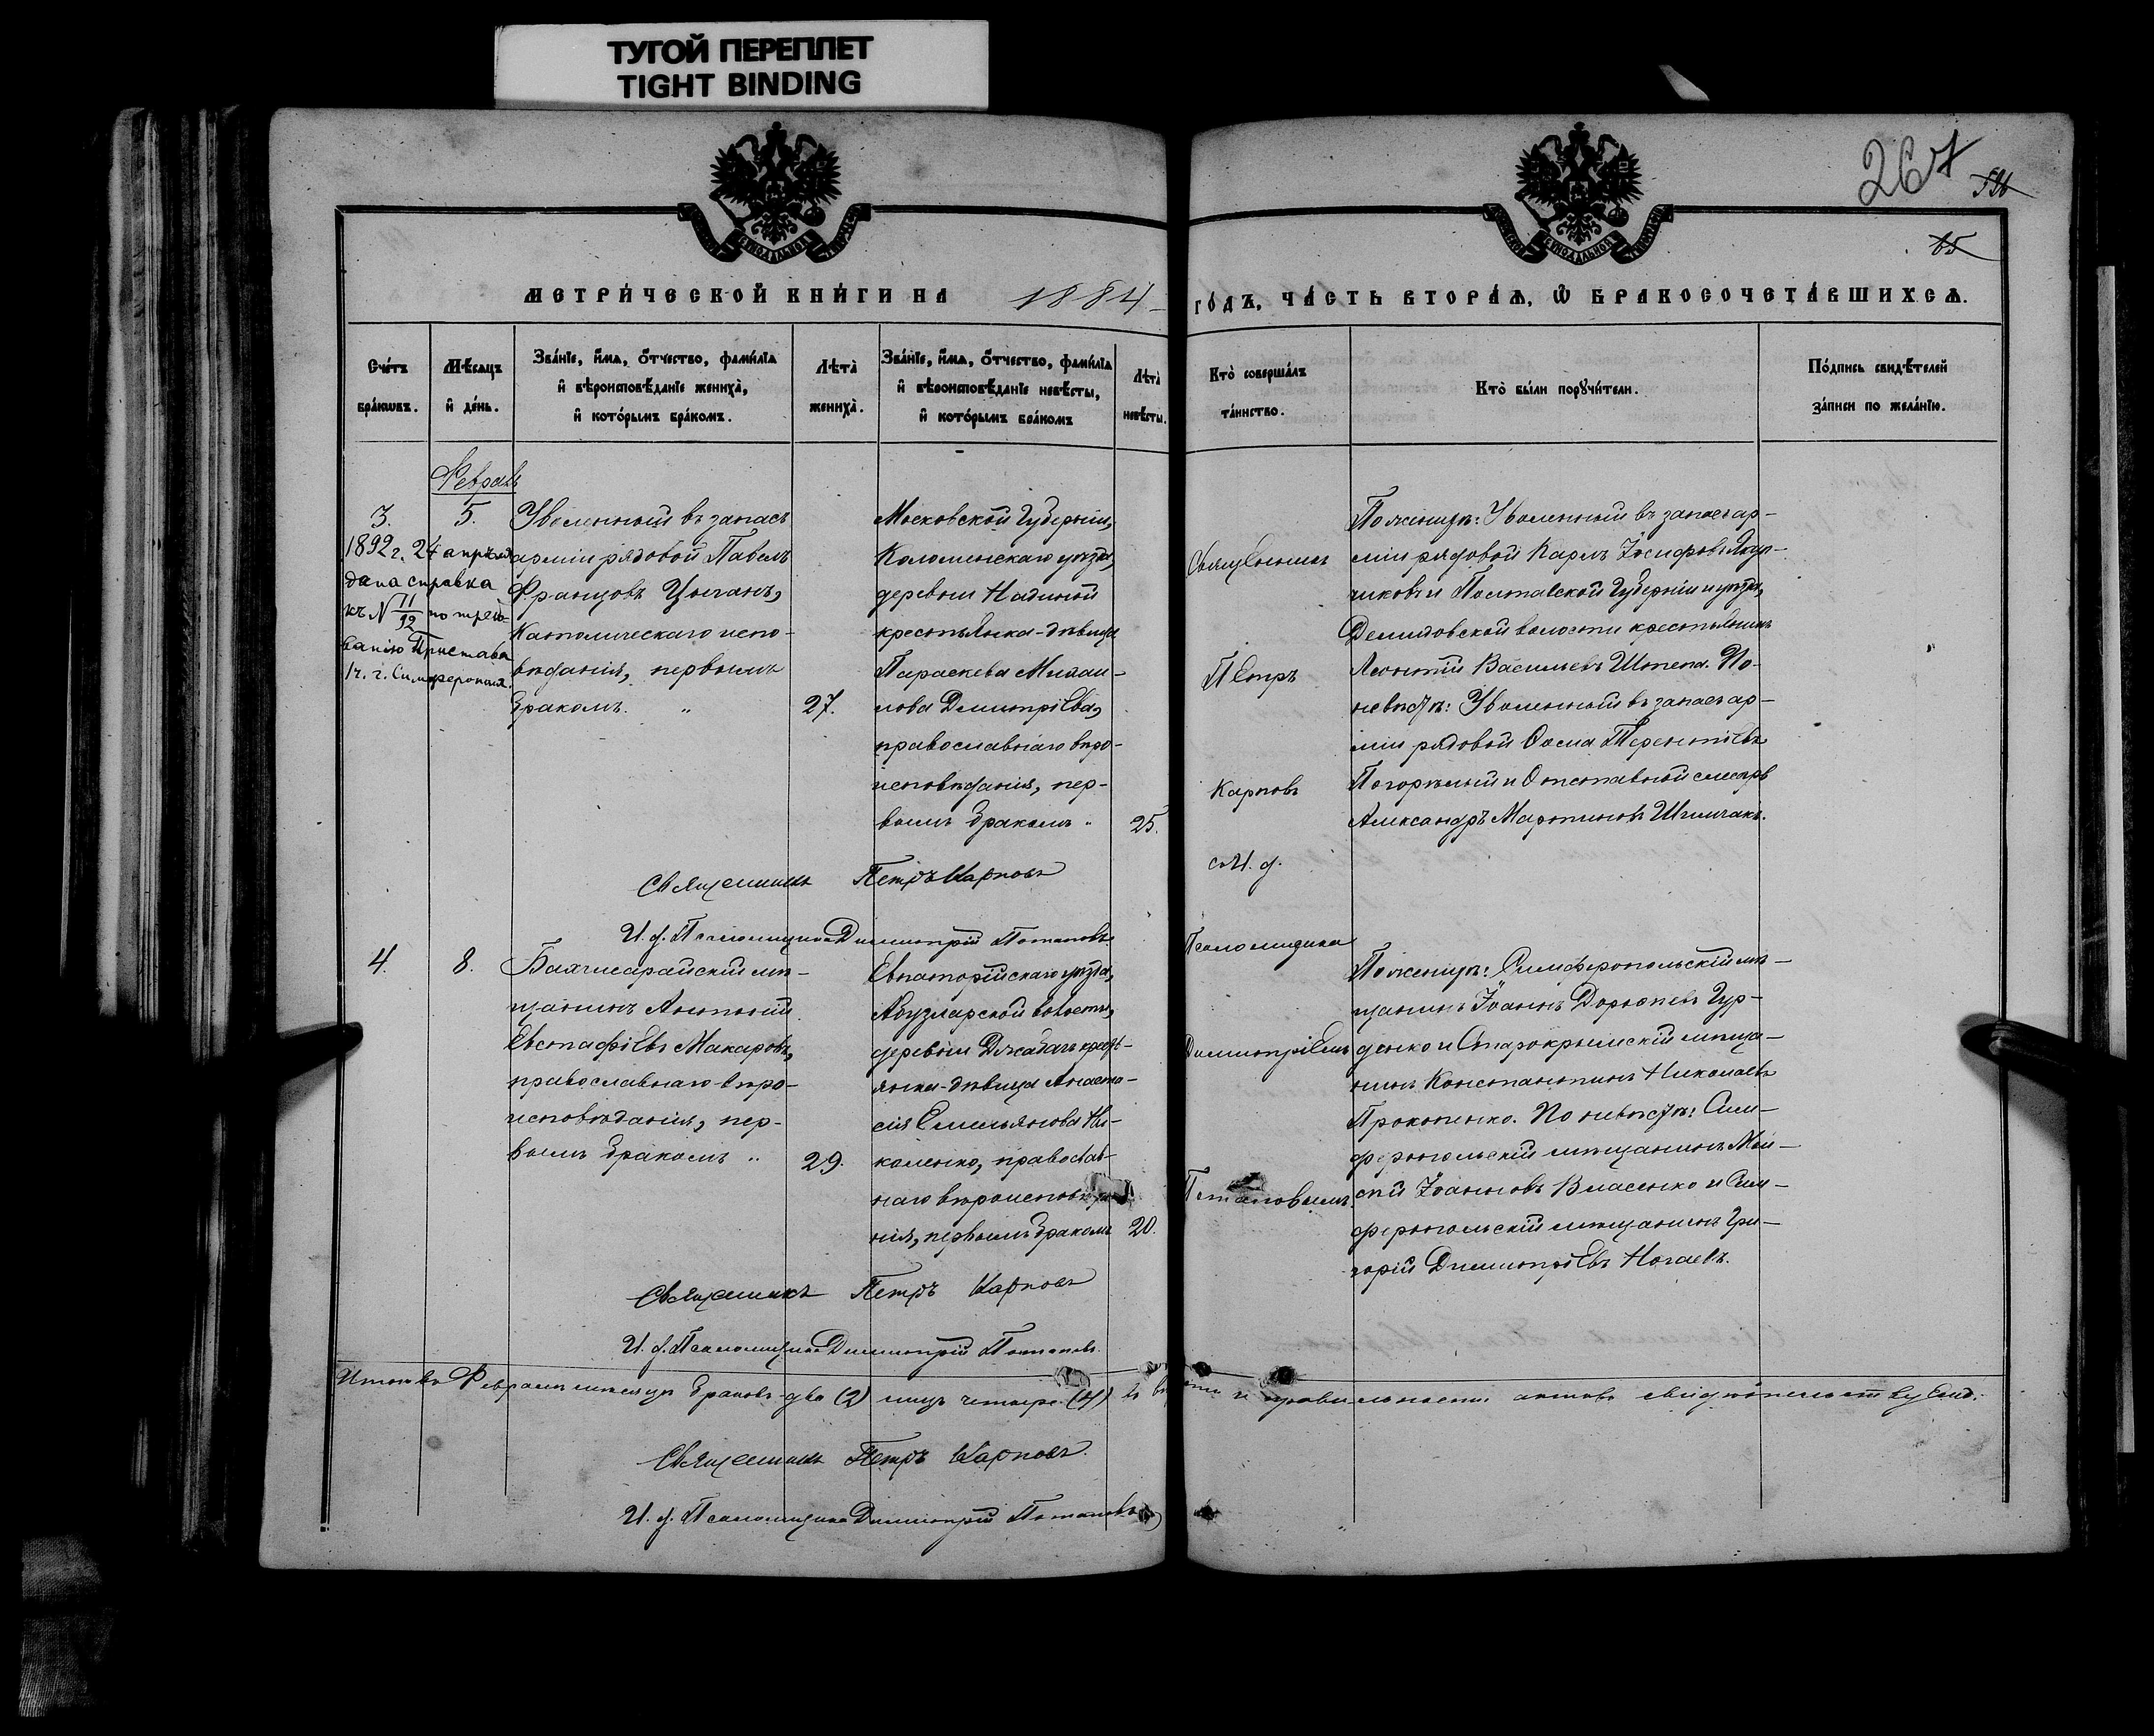 ТУГОЙ ПЕРЕПЛЕТ
TIGHT BINDING
267
85
МЕТРИ́ЧЕСКОЙ КНИ́ГИ НА 1884
ГО́ДЪ, ЧА́СТЬ ВТОРА́Ѧ, Ѿ БРАКОСОЧЕТА́ВШИХСѦ.
Сче́тъ
бра́кѡвъ.
Мѣ́сѧцъ
и҆ де́нь.
Зва́нїе, и҆́мѧ, ѻ҆́тчество, фами́лїа
и҆ вѣроисповѣ́данїе жениха̀,
и҆ кото́рымъ бра́комъ.
Лѣ́та
жениха̀.
Зва́нїе, и҆́мѧ, ѻ҆́тчество, фами́лїа
и҆ вѣроисповѣ́данїе невѣ́сты,
и҆ кото́рымъ бра́комъ
Лѣ́та
невѣ́сты.
Кто̀ соверша́лъ
та́инство.
Кто̀ бы́ли порꙋчи́тели.
По́дпись свидѣ́телей
за́писи по жела́нїю.
Февраль
3.
1892 г. 24 апрѣля
дана справка
къ N 11/92 по требо-
ванію Пристава
1 ч. г. Симферополя.
5.
Уволенный въ запасъ
арміи рядовой Павелъ
Францовъ Цыганъ,
Католическаго испо-
вѣданія, первымъ
бракомъ. "
27.
Московской Губерніи,
Коломенскаго уѣзда,
деревни
крестьянка-дѣвица
Параскева Михаи-
лова Димитріева,
православнаго вѣро-
исповѣданія, пер-
вымъ бракомъ "
25.
Священникъ
Петръ
Карповъ
съ И. д.
Псаломщика
Димитріемъ
Потаповымъ
По женихѣ: Уволенный въ запасъ ар-
міи рядовой Карлъ Іосифовъ
и Полтавской Губерніи и уѣзда,
Демидовской волости крестьянинъ
Леонтій Васильевъ Штепа. По
невѣстѣ: Уволенный въ запасъ ар-
міи рядовой Ѳома Терентіевъ
Погорѣлый и Отставной слесарь
Александръ Мартиновъ
Священникъ Петръ Карповъ
И. д. Псаломщика Димитрій Потаповъ
4.
8.
Бахчисарайскій мѣ-
щанинъ Антоній
Евстафіевъ Макаровъ,
православнаго вѣро-
исповѣданія, пер-
вымъ бракомъ "
29.
Евпаторійскаго уѣзда,
Абузларской волости,
деревни Джабачъ кресть-
янка-дѣвица Анаста-
сія Емельянова Ни-
коленко, православ-
наго вѣроисповѣда-
нія, первымъ бракомъ
20.
По женихѣ: Симферопольскій мѣ-
щанинъ Іоаннъ Дороѳеевъ Гур-
денко и Старокрымскій мѣща-
нинъ Константинъ Николаевъ
Прокопенко. По невѣстѣ: Сим-
феропольскій мѣщанинъ Мои-
сей Іоанновъ Власенко и Сим-
феропольскій мѣщанинъ Гри-
горій Димитріевъ Ногаевъ.
Священникъ Петръ Карповъ
И. д. Псаломщика Димитрій Потаповъ.
Итого въ Февралѣ мѣсяцѣ браковъ-два (2) лицъ четыре (4) въ и правильности актовъ свидѣтельствуемъ.
Священникъ Петръ Карповъ.
И. д. Псаломщика Димитрій Потаповъ